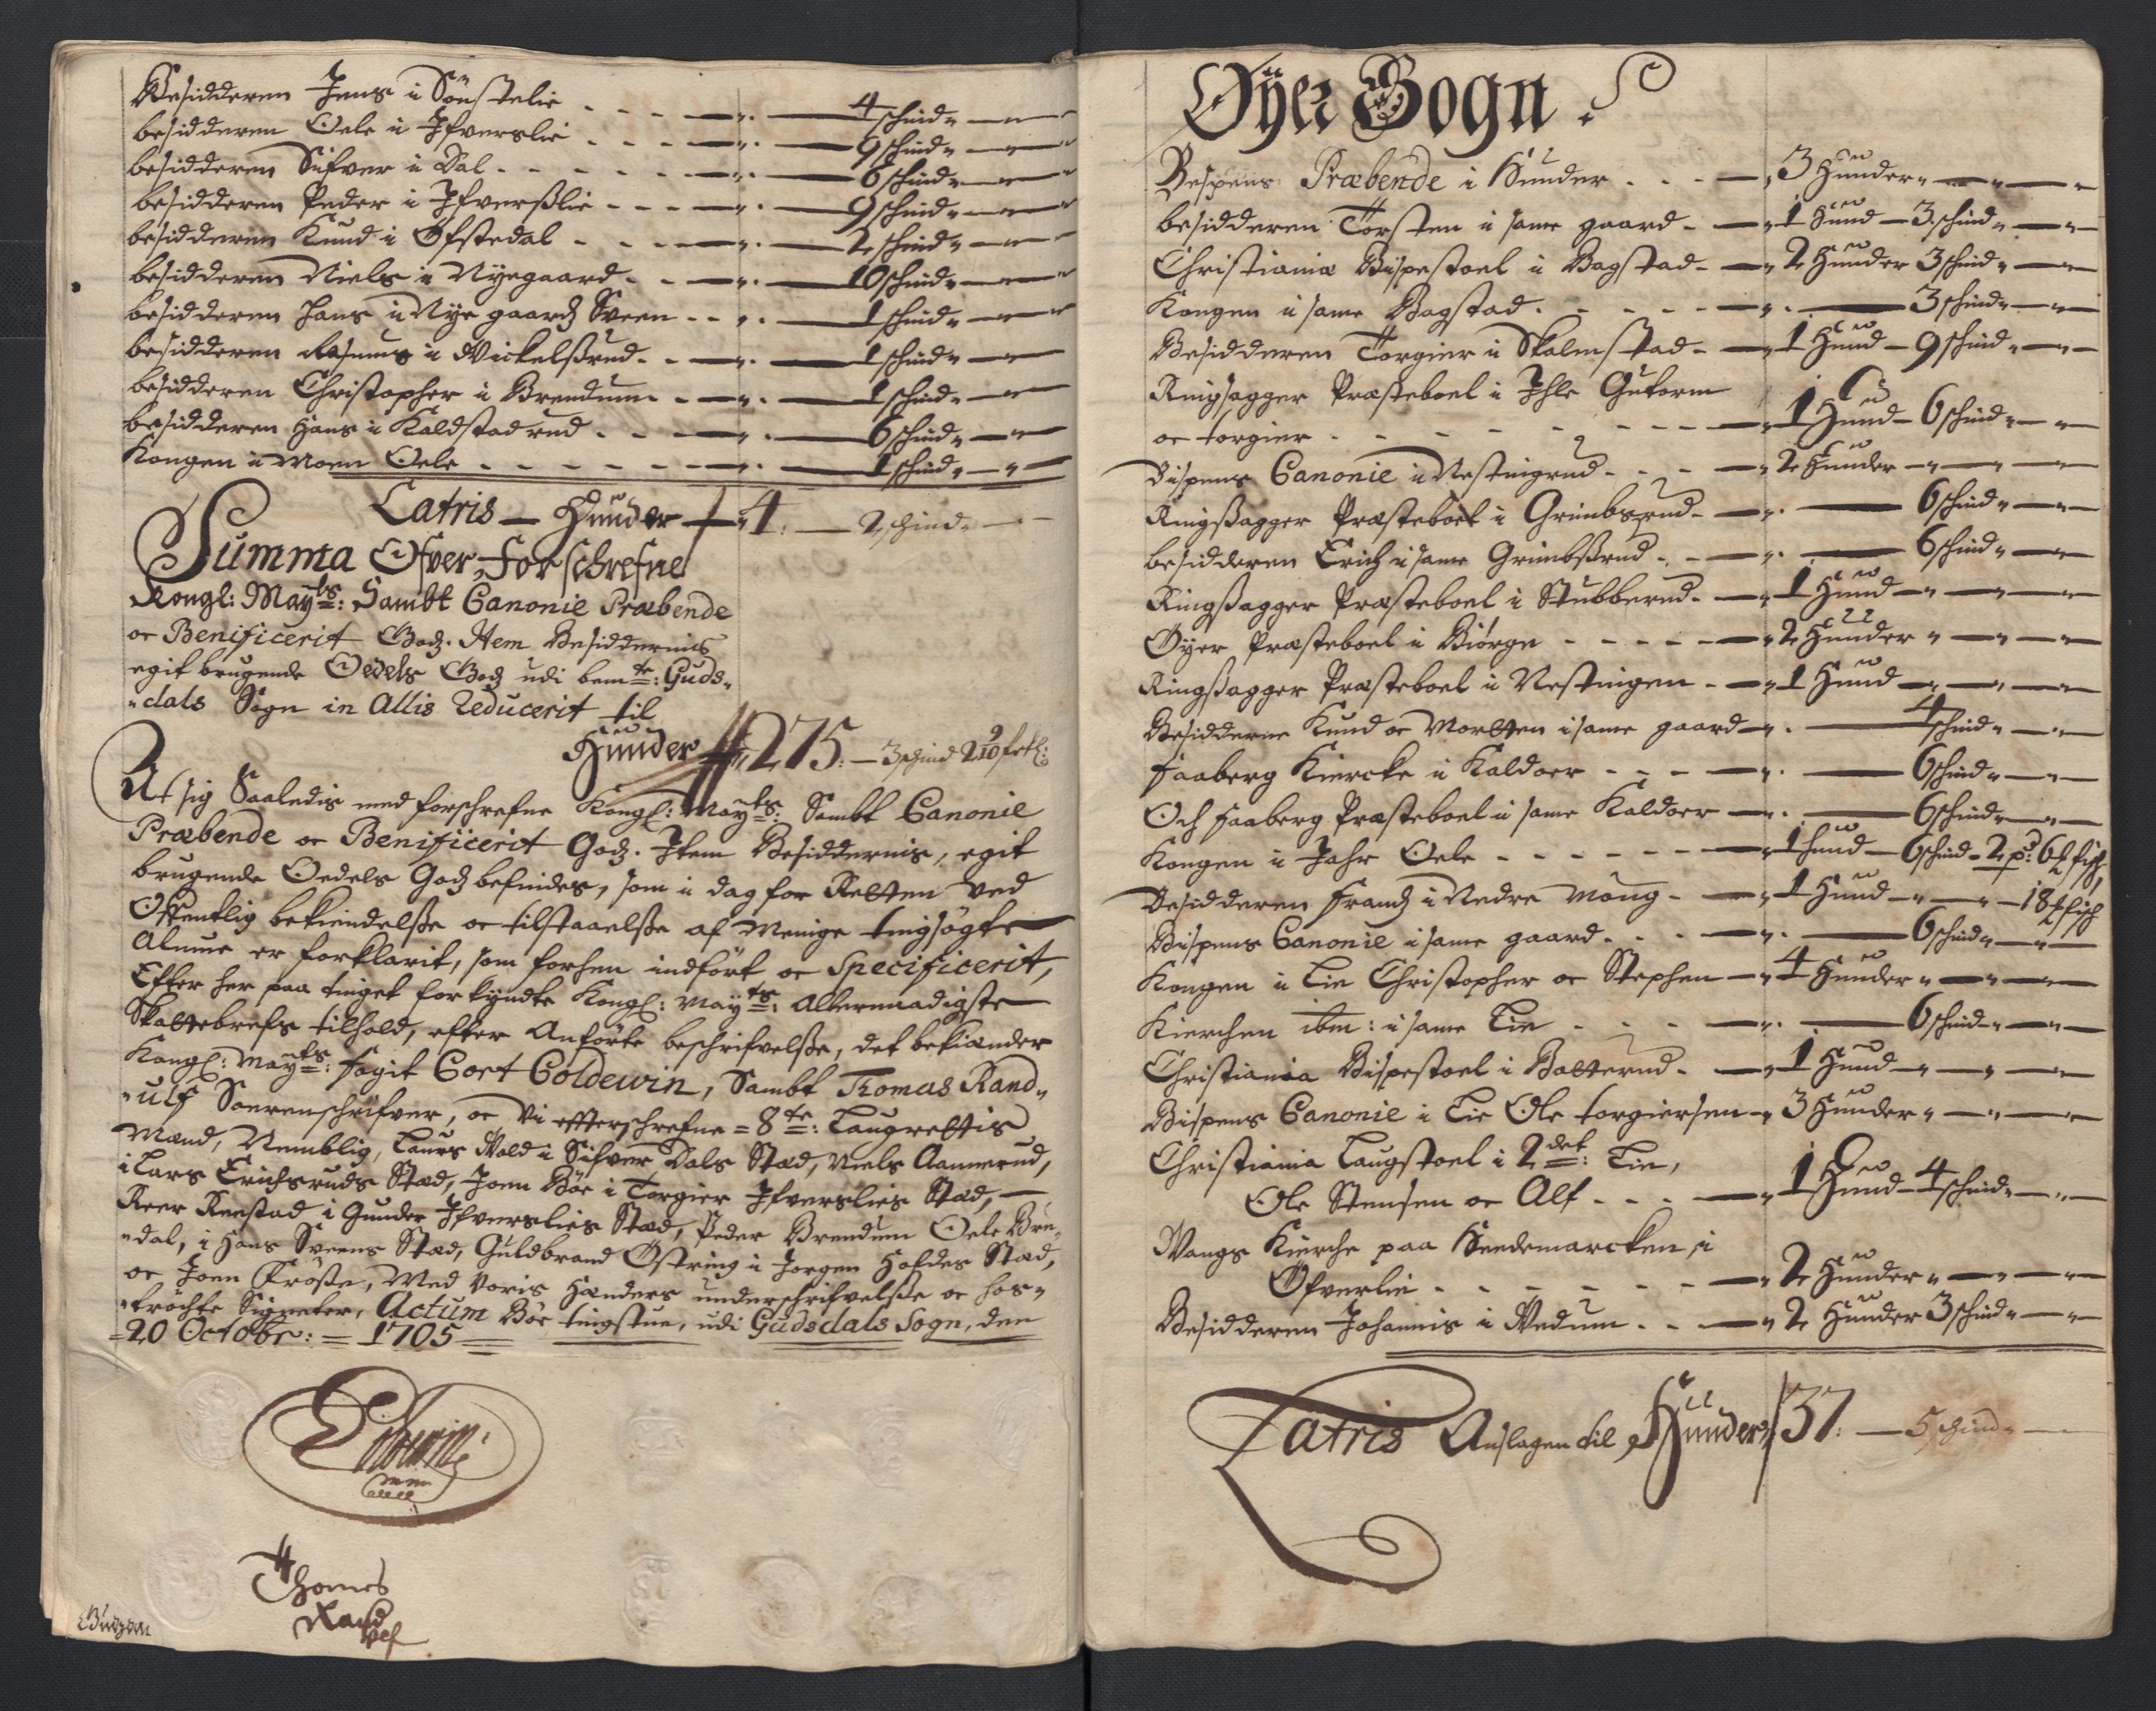 Besidderen Jens i Sönstelie - - - - 4 schind
besidderen Oele i Ifverslie - - - - 9 schind
besidderen Sifver i Dal - - - - 6 schind
besidderen Peder i Ifverßlie - - - 9 schind
besidderen Knud i Ofstedal - - - 2 schind
besidderen Niels i Nyegaard - - - 10 schind
besidderen Hans i Nye gaards Sveen - - 1 schind
besidderen Rasmus i Wickelßrud - - 1 schind
besidderen Christopher i Brendum - - 1 schind
besidderen Hans i Kaldstadrud - - - 6 schind
Kongen i Moen Oele - - - - - 1 schind
Latris — Hunder 4: — 2 schind
Summa Ofver forschrefne
Kongl: Mayts: Sambt Canonie Præbende
oc Benificerit Godz. Item Besiddernis
egit brugende Oedels Godz udi bemte: Guds-
dals Sogn in Allis Reducerit til
Hunder 275: — 3 schind 2 9/10
At sig Saaledis med forschrefne Kongl: Mayts: Sambt Canonie
Præbende oc Benificerit Godz. Item Besiddernis, egit
brugende Oedels Godz befindes, som i dag for Retten ved
Offentlig bekiendelße oc tilstaaelße af Menige tingsögte
Almue er forklarit, som forhen indfört oc Specificerit,
Efter her paa tinget forkyndte Kongl: Mayts: Allernaadigste
Skattebrefs tilhold, efter Anförte beschrifvelße, det bekiænder
Kongl: Mayts: fogit Cort Coldewin, Sambt Thomas Rand-
ulf Sorenschrifver, oc Vi effterschrefne = 8te: Laugrettis
Mænd, Nemblig, Laurs Wold i Sifver Dals Stæd, Niels Aannerud,
i Lars Erichsruds Stæd, Joen Böe i Torgier Ifverslies Stæd, —
Reer Reestad i Gunder Ifverslies Stæd, Peder Brendum Oele Bre-
dal, i Hans Sveens Stæd, Guldbrand Östring i Jorgen Hofdes Stæd,
oc Joen Fröße, Med Voris Hænders underschrifvelße oc hos-
tröchte Signeter, Actum Böe tingstue, udi Gudsdals Sogn, den
20 Octobr: = 1705
Thomes
Rand
ulf
Öÿer Sogn
Bespens Præbende i Hunder - - - 3 Hunder
besidderen Torsten i same gaard - 1 Hund — 3 schind
Christiania Bispestoel i Bagstad - 2 Hunder 3 schind
Kongen i same Bagstad - - - - - 3 schind
Besidderen Torgier i Skalmstad - 1 Hund — 9 schind
Ringsagger Præsteboel i Ihle Gutorm
oc torgier - - - - - - - 1 Hund — 6 schind
Bispens Canonie i Nestingrud - - - 2 Hunder
Ringßagger Præsteboel i Grimbsrud - 6 schind
besidderen Erich i same Grimbßrud - - 6 schind
Ringßagger Præsteboel i Stubberud - 1 Hund
Öyer Præsteboel i Biörge - - - - 2 Hunder
Ringßagger Præsteboel i Nestingen - 1 Hund
Besidderne Knud oc Mortten i same gaard - 4 schind
faaberg Kiercke i Kaldoer - - - 6 schind
Och faaberg Præsteboel i same Kaldoer - 6 schind
Kongen i Jahr Oele - - - - - 1 Hund — 6 schind — 2 pd: 6 fisch,
Besidderen Frandz i Nedre Moug - 1 Hund — 18 fisch
Bispens Canonie i same gaard - - - 6 schind
Kongen i Lie Christopher oc Stephen - 4 Hunder
Kierchen ibm: i same Lie - - - 6 schind
Christiania Bispestoel i Batterud - 1 Hund
Bispens Canonie i Lie Ole torgiersen - 3 Hunder
Christiania Laugstoel i 2det: Lie,
Ole Stensen oc Alf - - - 1 Hund — 4 schind
Wangs Kierche paa Heedemarcken, i
Öfverlie - - - - - - 2 Hunder
Besidderen Johannis i Wedum - - 2 Hunder 3 schind
Latris Anslagen til Hunder 37: — 5 schind